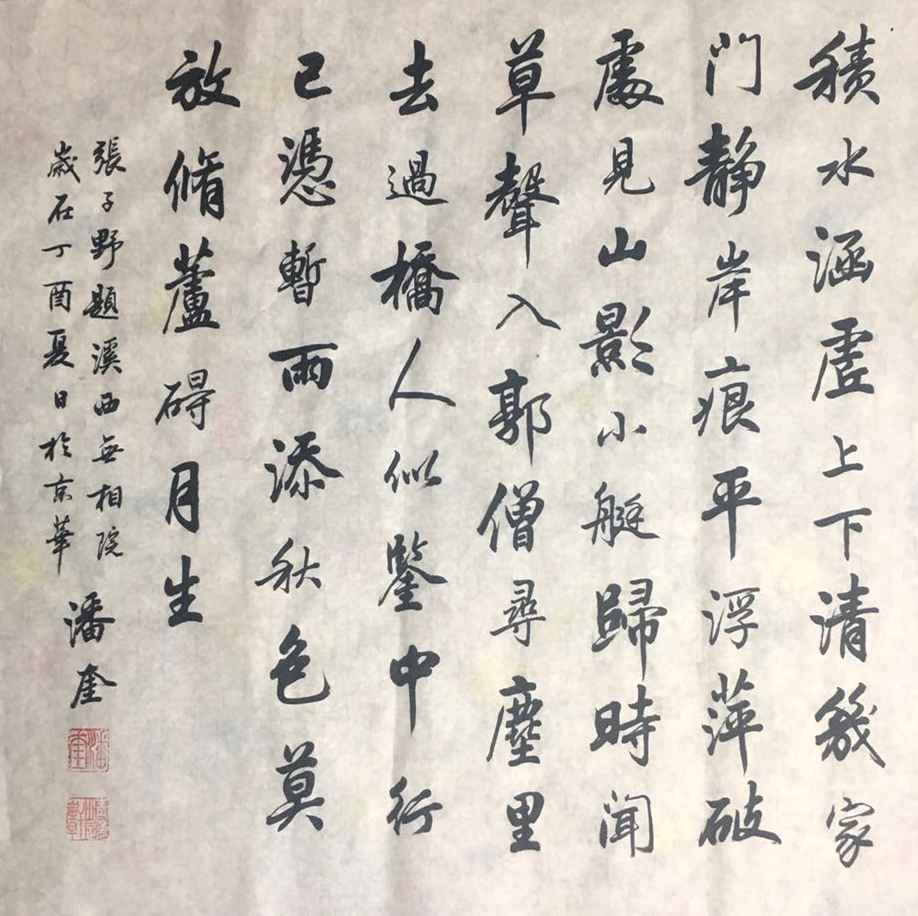 積水涵虛上下清幾家
門静岸痕平浮萍破
處見山影小艇歸時聞
草聲入郭僧尋塵里
去過橋人似鑒中行
已憑暫雨添秋色莫
放脩蘆碍月生
張子野題溪西無相院
歲在丁酉夏日於京華
潘奎